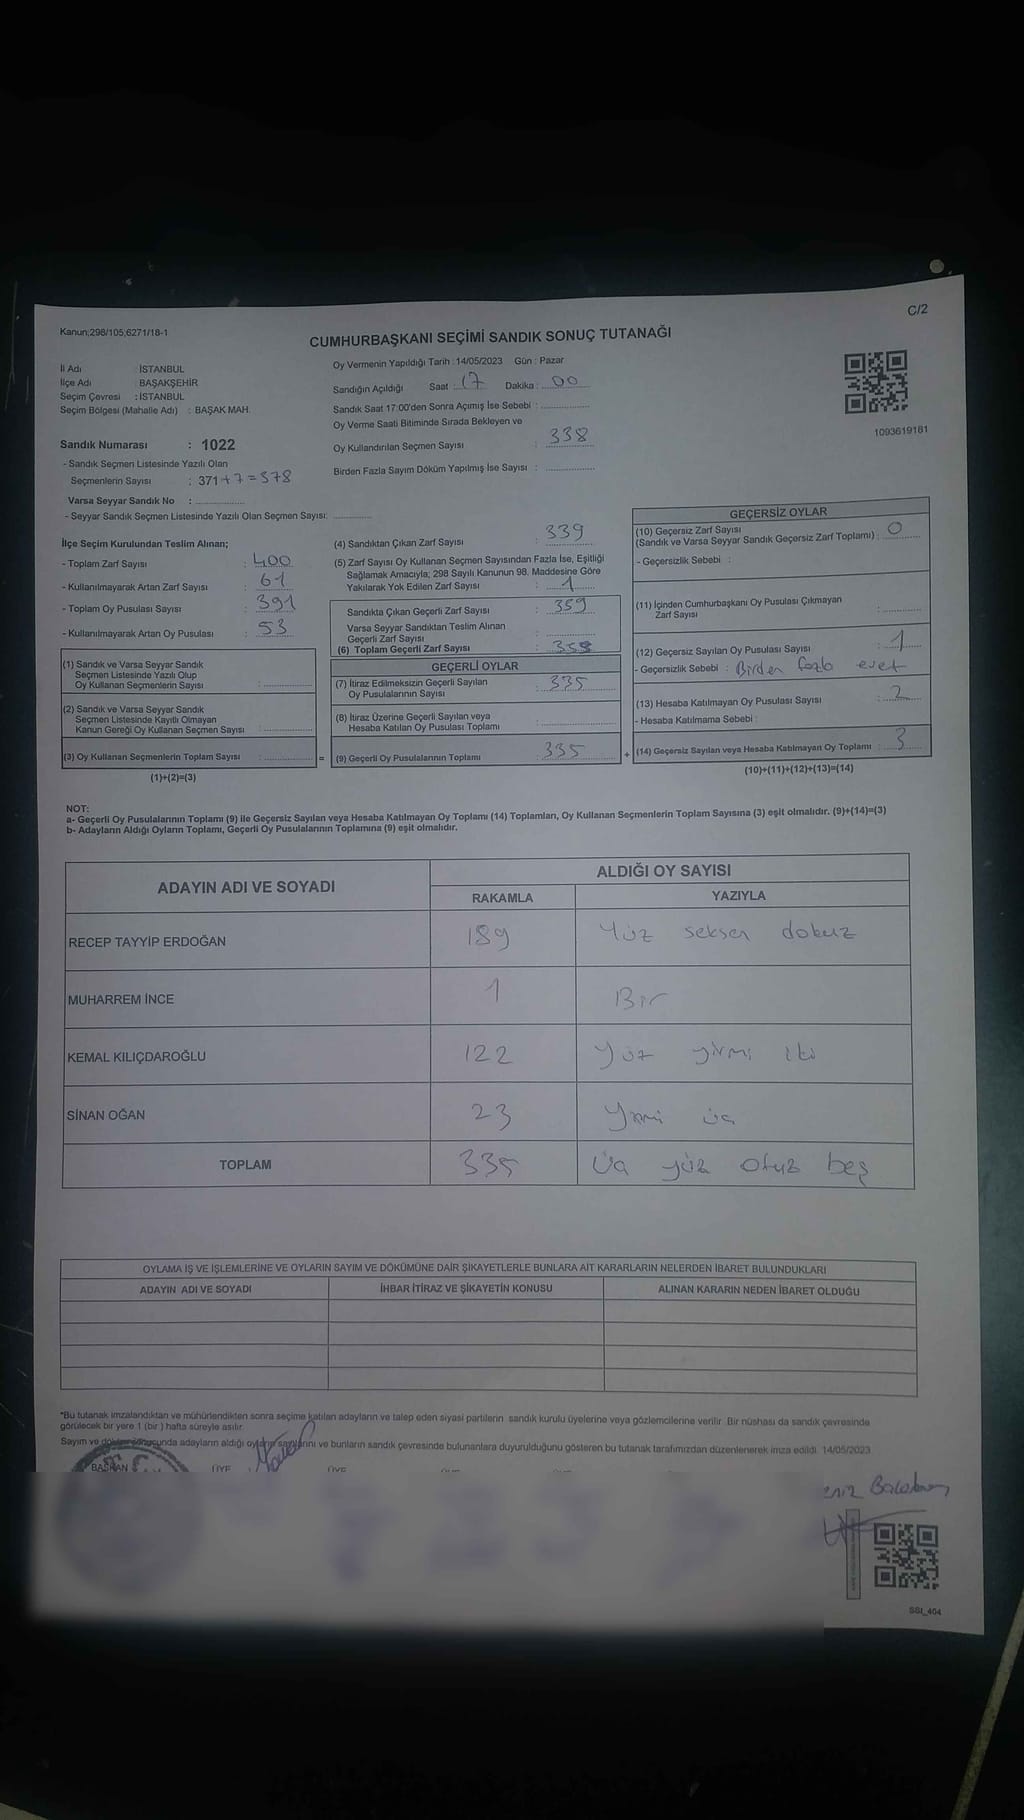 C/2
Kanun;298/105,6271/18-1
CUMHURBAŞKANI SEÇİMİ SANDIK SONUÇ TUTANAĞI
İl Adı : İSTANBUL
İlçe Adı : BAŞAKŞEHİR
Seçim Çevresi : İSTANBUL
Seçim Bölgesi (Mahalle Adı) : BAŞAK MAH.
Sandık Numarası : 1022
- Sandık Seçmen Listesinde Yazılı Olan
Seçmenlerin Sayısı : 371+7=378
Varsa Seyyar Sandık No :
- Seyyar Sandık Seçmen Listesinde Yazılı Olan Seçmen Sayısı:
Oy Vermenin Yapıldığı Tarih :14/05/2023 Gün : Pazar
Sandığın Açıldığı Saat : 17 Dakika : 00
Sandık Saat 17:00'den Sonra Açımış İse Sebebi :
Oy Verme Saati Bitiminde Sırada Bekleyen ve
Oy Kullandırılan Seçmen Sayısı : 338
Birden Fazla Sayım Döküm Yapılmış İse Sayısı :
1093619181
İlçe Seçim Kurulundan Teslim Alınan;
- Toplam Zarf Sayısı : 400
- Kullanılmayarak Artan Zarf Sayısı : 61
- Toplam Oy Pusulası Sayısı : 391
- Kullanılmayarak Artan Oy Pusulası : 53
(1) Sandık ve Varsa Seyyar Sandık
Seçmen Listesinde Yazılı Olup
Oy Kullanan Seçmenlerin Sayısı :
(2) Sandık ve Varsa Seyyar Sandık
Seçmen Listesinde Kayıtlı Olmayan
Kanun Gereği Oy Kullanan Seçmen Sayısı :
(3) Oy Kullanan Seçmenlerin Toplam Sayısı :
(1)+(2)=(3)
(4) Sandıktan Çıkan Zarf Sayısı : 339
(5) Zarf Sayısı Oy Kullanan Seçmen Sayısından Fazla İse, Eşitliği
Sağlamak Amacıyla; 298 Sayılı Kanunun 98. Maddesine Göre
Yakılarak Yok Edilen Zarf Sayısı : 1
Sandıkta Çıkan Geçerli Zarf Sayısı :
Varsa Seyyar Sandıktan Teslim Alınan
Geçerli Zarf Sayısı :
(6) Toplam Geçerli Zarf Sayısı :
GEÇERLİ OYLAR
(7) İtiraz Edilmeksizin Geçerli Sayılan
Oy Pusulalarının Sayısı : 335
(8) İtiraz Üzerine Geçerli Sayılan veya
Hesaba Katılan Oy Pusulası Toplamı :
= (9) Geçerli Oy Pusulalarının Toplamı : 335 +
GEÇERSİZ OYLAR
(10) Geçersiz Zarf Sayısı
(Sandık ve Varsa Seyyar Sandık Geçersiz Zarf Toplamı) : 0
- Geçersizlik Sebebi :
(11) İçinden Cumhurbaşkanı Oy Pusulası Çıkmayan
Zarf Sayısı :
(12) Geçersiz Sayılan Oy Pusulası Sayısı : 1
- Geçersizlik Sebebi : Birden fazla evet
(13) Hesaba Katılmayan Oy Pusulası Sayısı : 2
- Hesaba Katılmama Sebebi :
(14) Geçersiz Sayılan veya Hesaba Katılmayan Oy Toplamı : 3
(10)+(11)+(12)+(13)=(14)
NOT:
a- Geçerli Oy Pusulalarının Toplamı (9) ile Geçersiz Sayılan veya Hesaba Katılmayan Oy Toplamı (14) Toplamları, Oy Kullanan Seçmenlerin Toplam Sayısına (3) eşit olmalıdır. (9)+(14)=(3)
b- Adayların Aldığı Oyların Toplamı, Geçerli Oy Pusulalarının Toplamına (9) eşit olmalıdır.
ADAYIN ADI VE SOYADI ALDIĞI OY SAYISI
RAKAMLA YAZIYLA
RECEP TAYYİP ERDOĞAN 189 Yüz seksen dokuz
MUHARREM İNCE 1 Bir
KEMAL KILIÇDAROĞLU 122 Yüz yirmi iki
SİNAN OĞAN 23 Yirmi üç
TOPLAM 335 Üç yüz otuz beş
OYLAMA İŞ VE İŞLEMLERİNE VE OYLARIN SAYIM VE DÖKÜMÜNE DAİR ŞİKAYETLERLE BUNLARA AİT KARARLARIN NELERDEN İBARET BULUNDUKLARI
ADAYIN ADI VE SOYADI İHBAR İTİRAZ VE ŞİKAYETİN KONUSU ALINAN KARARIN NEDEN İBARET OLDUĞU
*Bu tutanak imzalandıktan ve mühürlendikten sonra seçime katılan adayların ve talep eden siyasi partilerin sandık kurulu üyelerine veya gözlemcilerine verilir. Bir nüshası da sandık çevresinde
görülecek bir yere 1 (bir) hafta süreyle asılır.
Sayım ve döküm sonucunda adayların aldığı oyların sayılarını ve bunların sandık çevresinde bulunanlara duyurulduğunu gösteren bu tutanak tarafımızdan düzenlenerek imza edildi. 14/05/2023
BAŞKAN ÜYE ÜYE
SSI_404